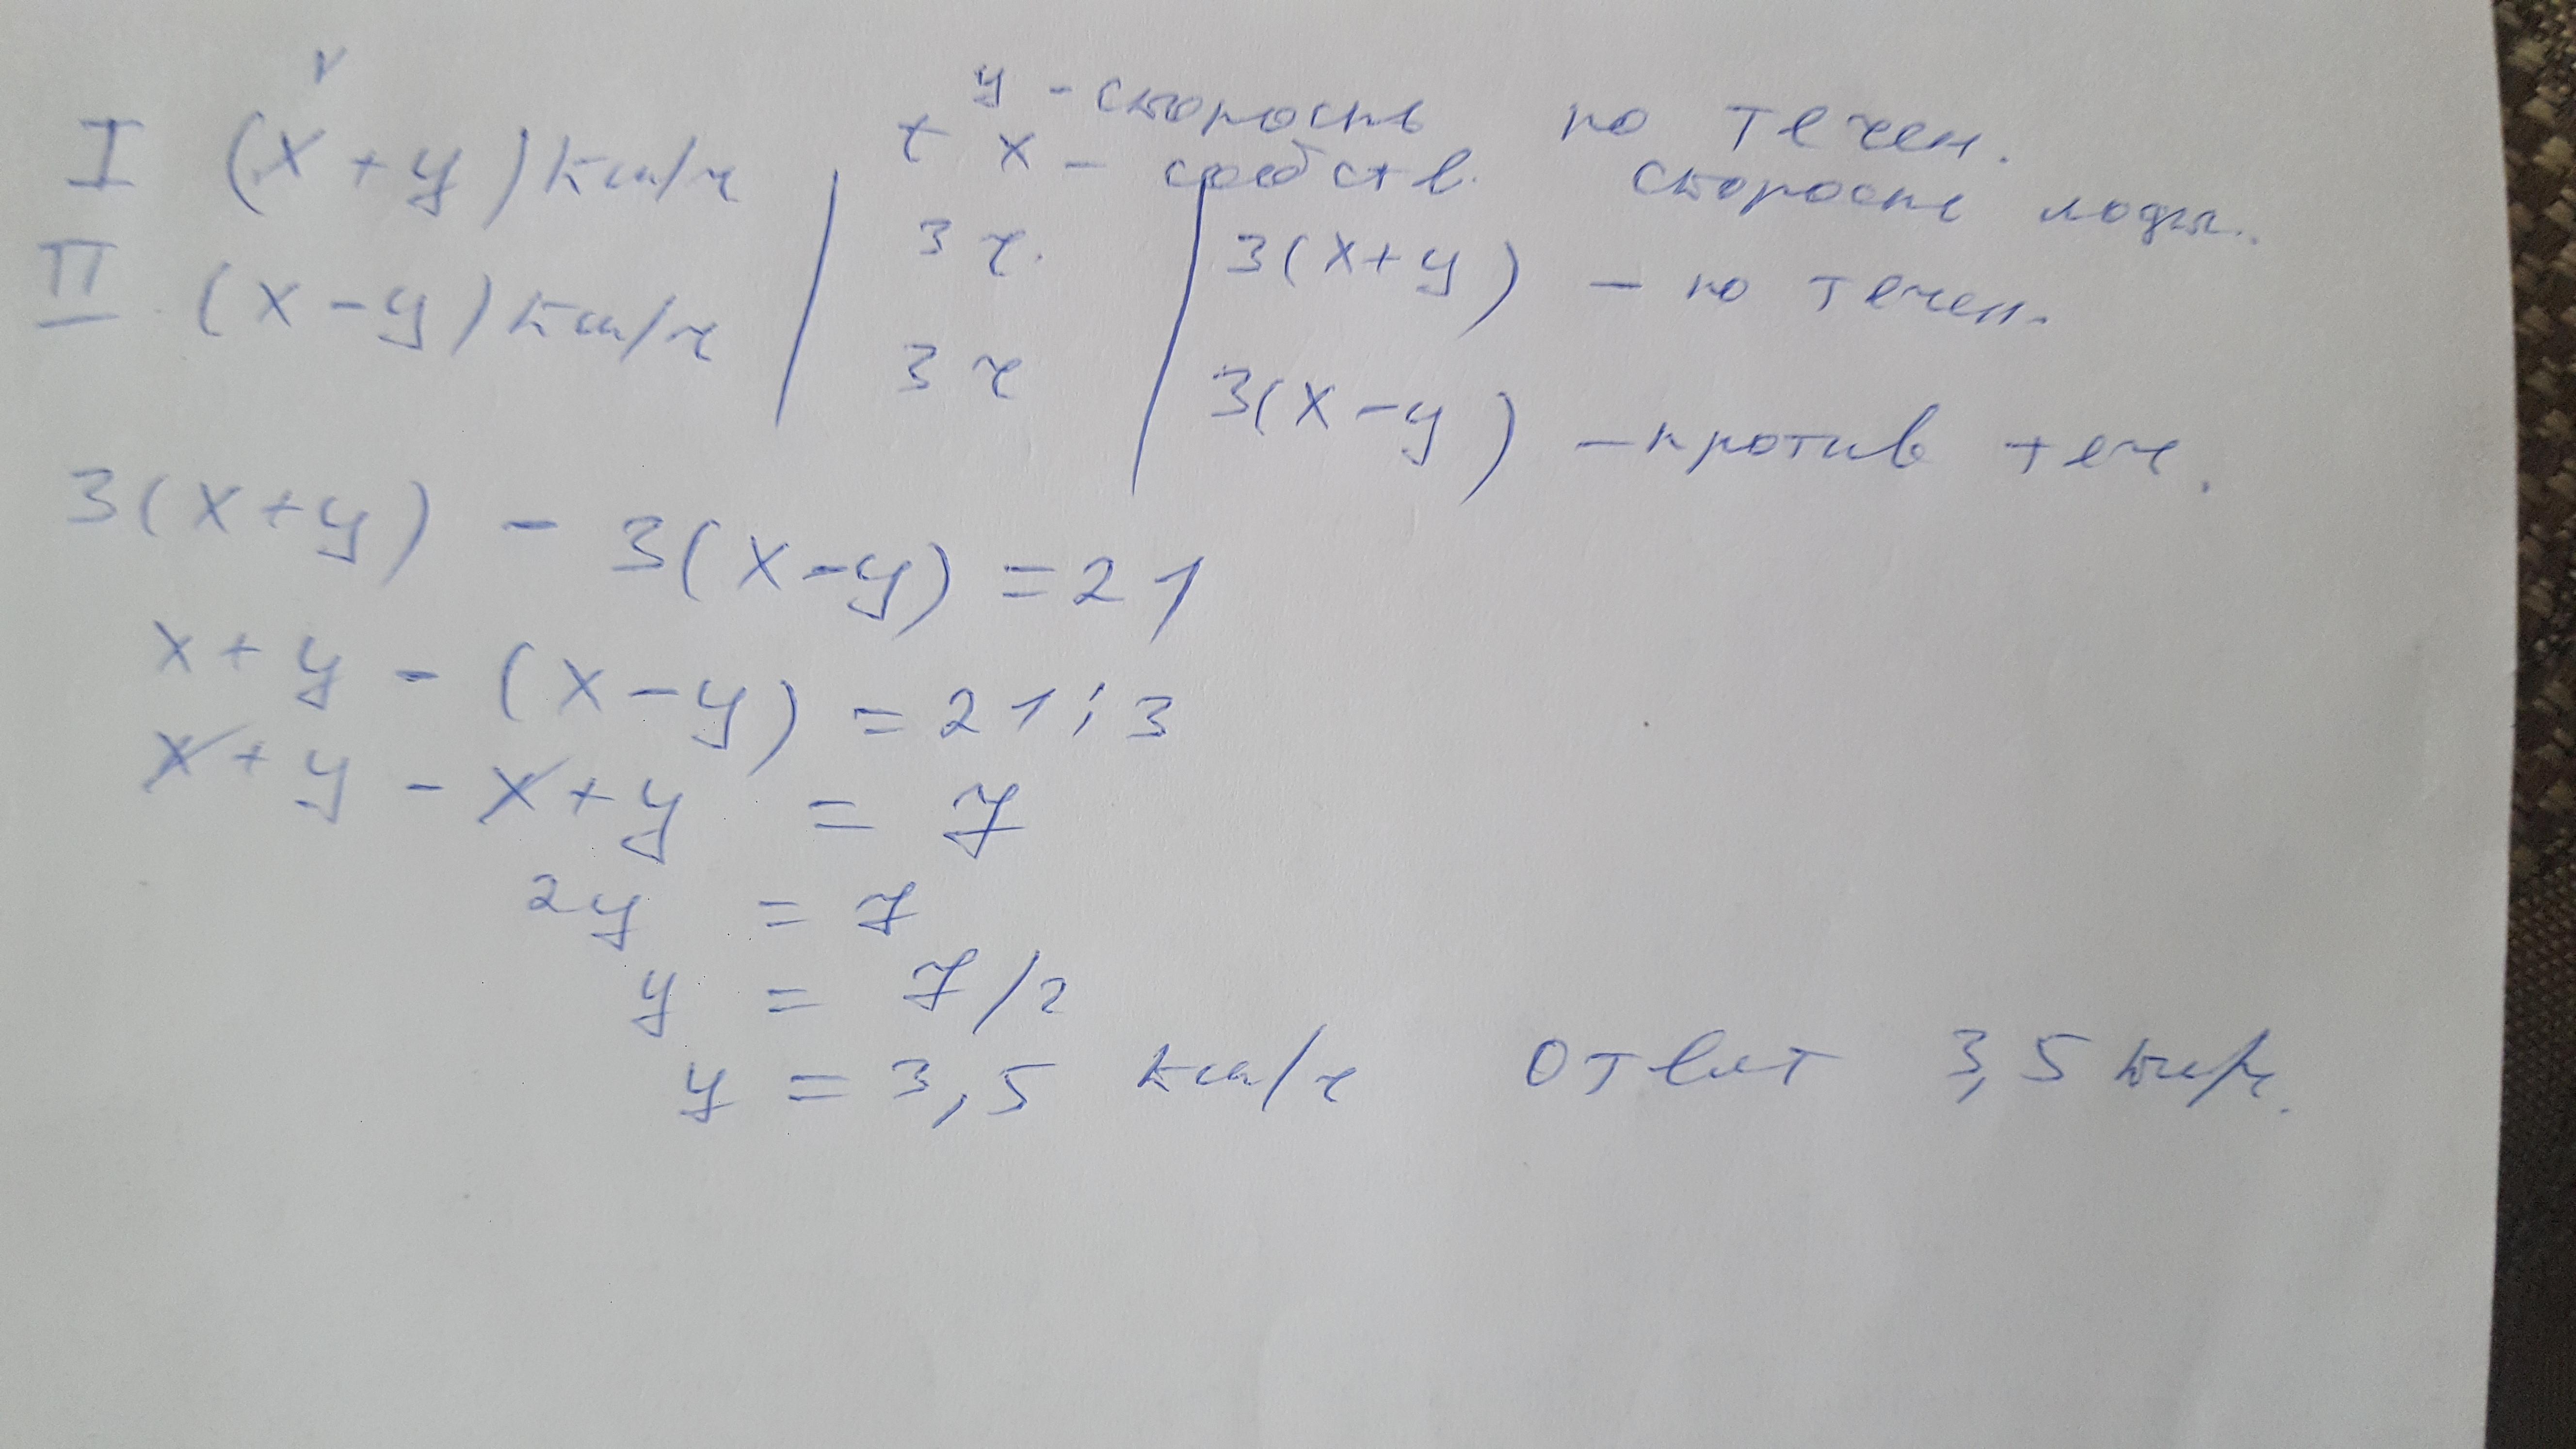 v
y - скорость по течен.
t x - собств. скорость лодки.
I (x + y) км/ч 3 ч. 3(x+y) - по течен.
II (x - y) км/ч 3 ч 3(x-y) - против теч.
3(x+y) - 3(x-y) = 21
x + y - (x - y) = 21 : 3
x + y - x + y = 7
2y = 7
y = 7/2
y = 3,5 км/ч Ответ 3,5 км/ч.